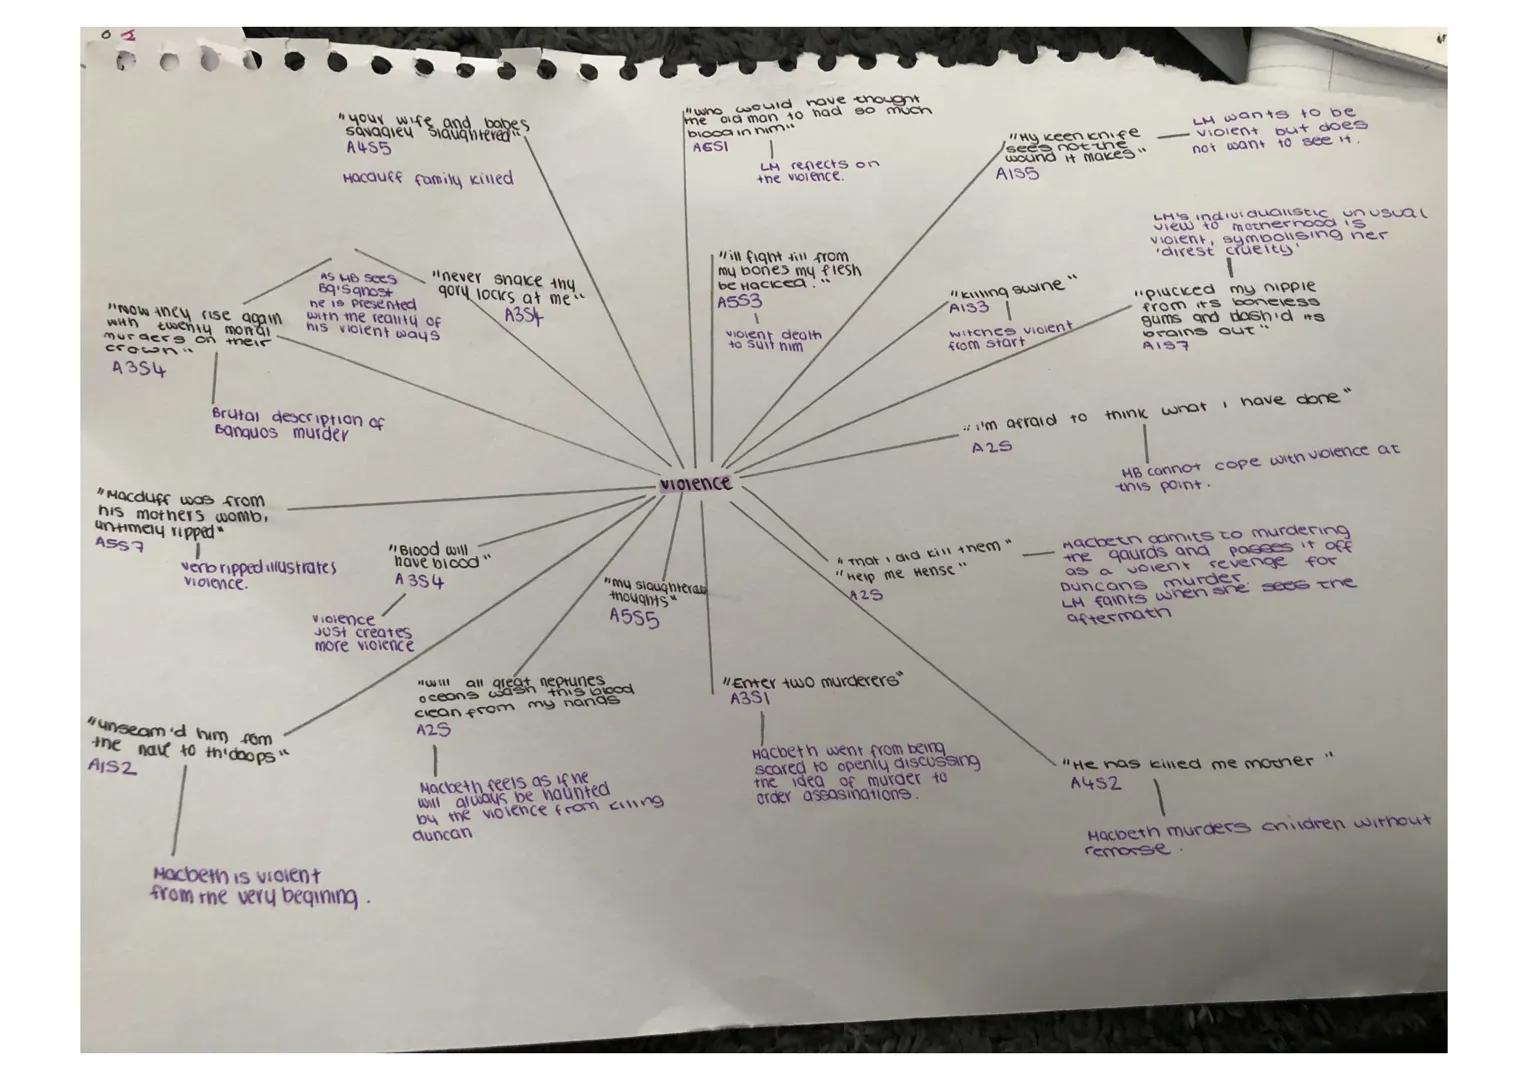 "your wife and babes
savagley slaughtered"
A4S5
Macduff family killed
"who would have thought
the old man to had so much
blood in him"
A6S1
LM reflects on
the violence.
"My keen knife
sees not the
wound it makes"
A1S5
LM wants to be
violent but does
not want to see it.
LM's individualistic unusual
view to motherhood is
violent, symbolising her
'direst cruelty'
"plucked my nipple
from its boneless
gums and dash'd its
brains out"
A1S7
"killing swine"
A1S3
witches violent
from start
"ill fight till from
my bones my flesh
be Hacked."
A5S3
violent death
to suit him
"never shake thy
gory locks at me"
A3S4
As MB sees
Bq's ghost
he is presented
with the reality of
his violent ways
"Now they rise again
with twenty mortal
murders on their
crown"
A3S4
Brutal description of
Banquos murder
"i'm afraid to think what i have done"
A2S
MB cannot cope with violence at
this point.
violence
"Macduff was from
his mothers womb,
untimely ripped"
A5S7
verb ripped illustrates
violence.
"Blood will
have blood"
A3S4
violence
just creates
more violence
"my slaughterous
thoughts"
A5S5
"That i did kill them"
"Help me Hense"
A2S
Macbeth admits to murdering
the gaurds and passes it off
as a voient revenge for
Duncans murder.
LM faints when she sees the
aftermath
"unseam'd him fom
the nave to th'chops"
A1S2
Macbeth is violent
from the very begining.
"will all great neptunes
oceans wash this blood
clean from my hands
A2S
Macbeth feels as if he
will always be haunted
by the violence from killing
duncan
"Enter two murderers"
A3S1
Macbeth went from being
scared to openly discussing
the idea of murder to
order assasinations.
"He has killed me mother"
A4S2
Macbeth murders children without
remorse.